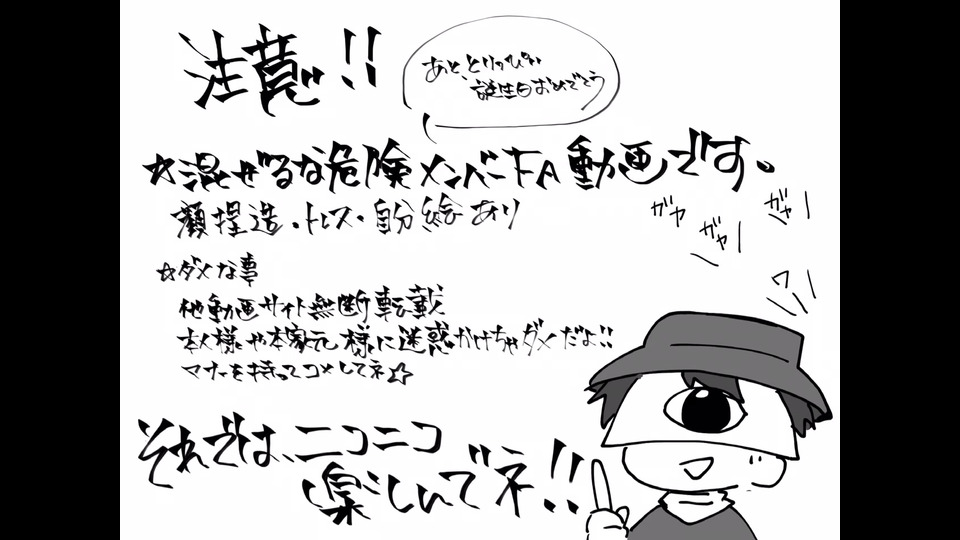 注意!!
あと、とりっぴぃ
誕生日おめでとう
☆混ぜるな危険メンバーFA動画です。
顔捏造・トレス・自分絵あり
☆ダメな事
他動画サイト無断転載
本人様や本家元様に迷惑かけちゃダメだよ!!
マナーを持ってコメしてネ☆
それでは、ニコニコ
楽しんでネ!!
ガヤ
ガヤー
ガヤー
ワー